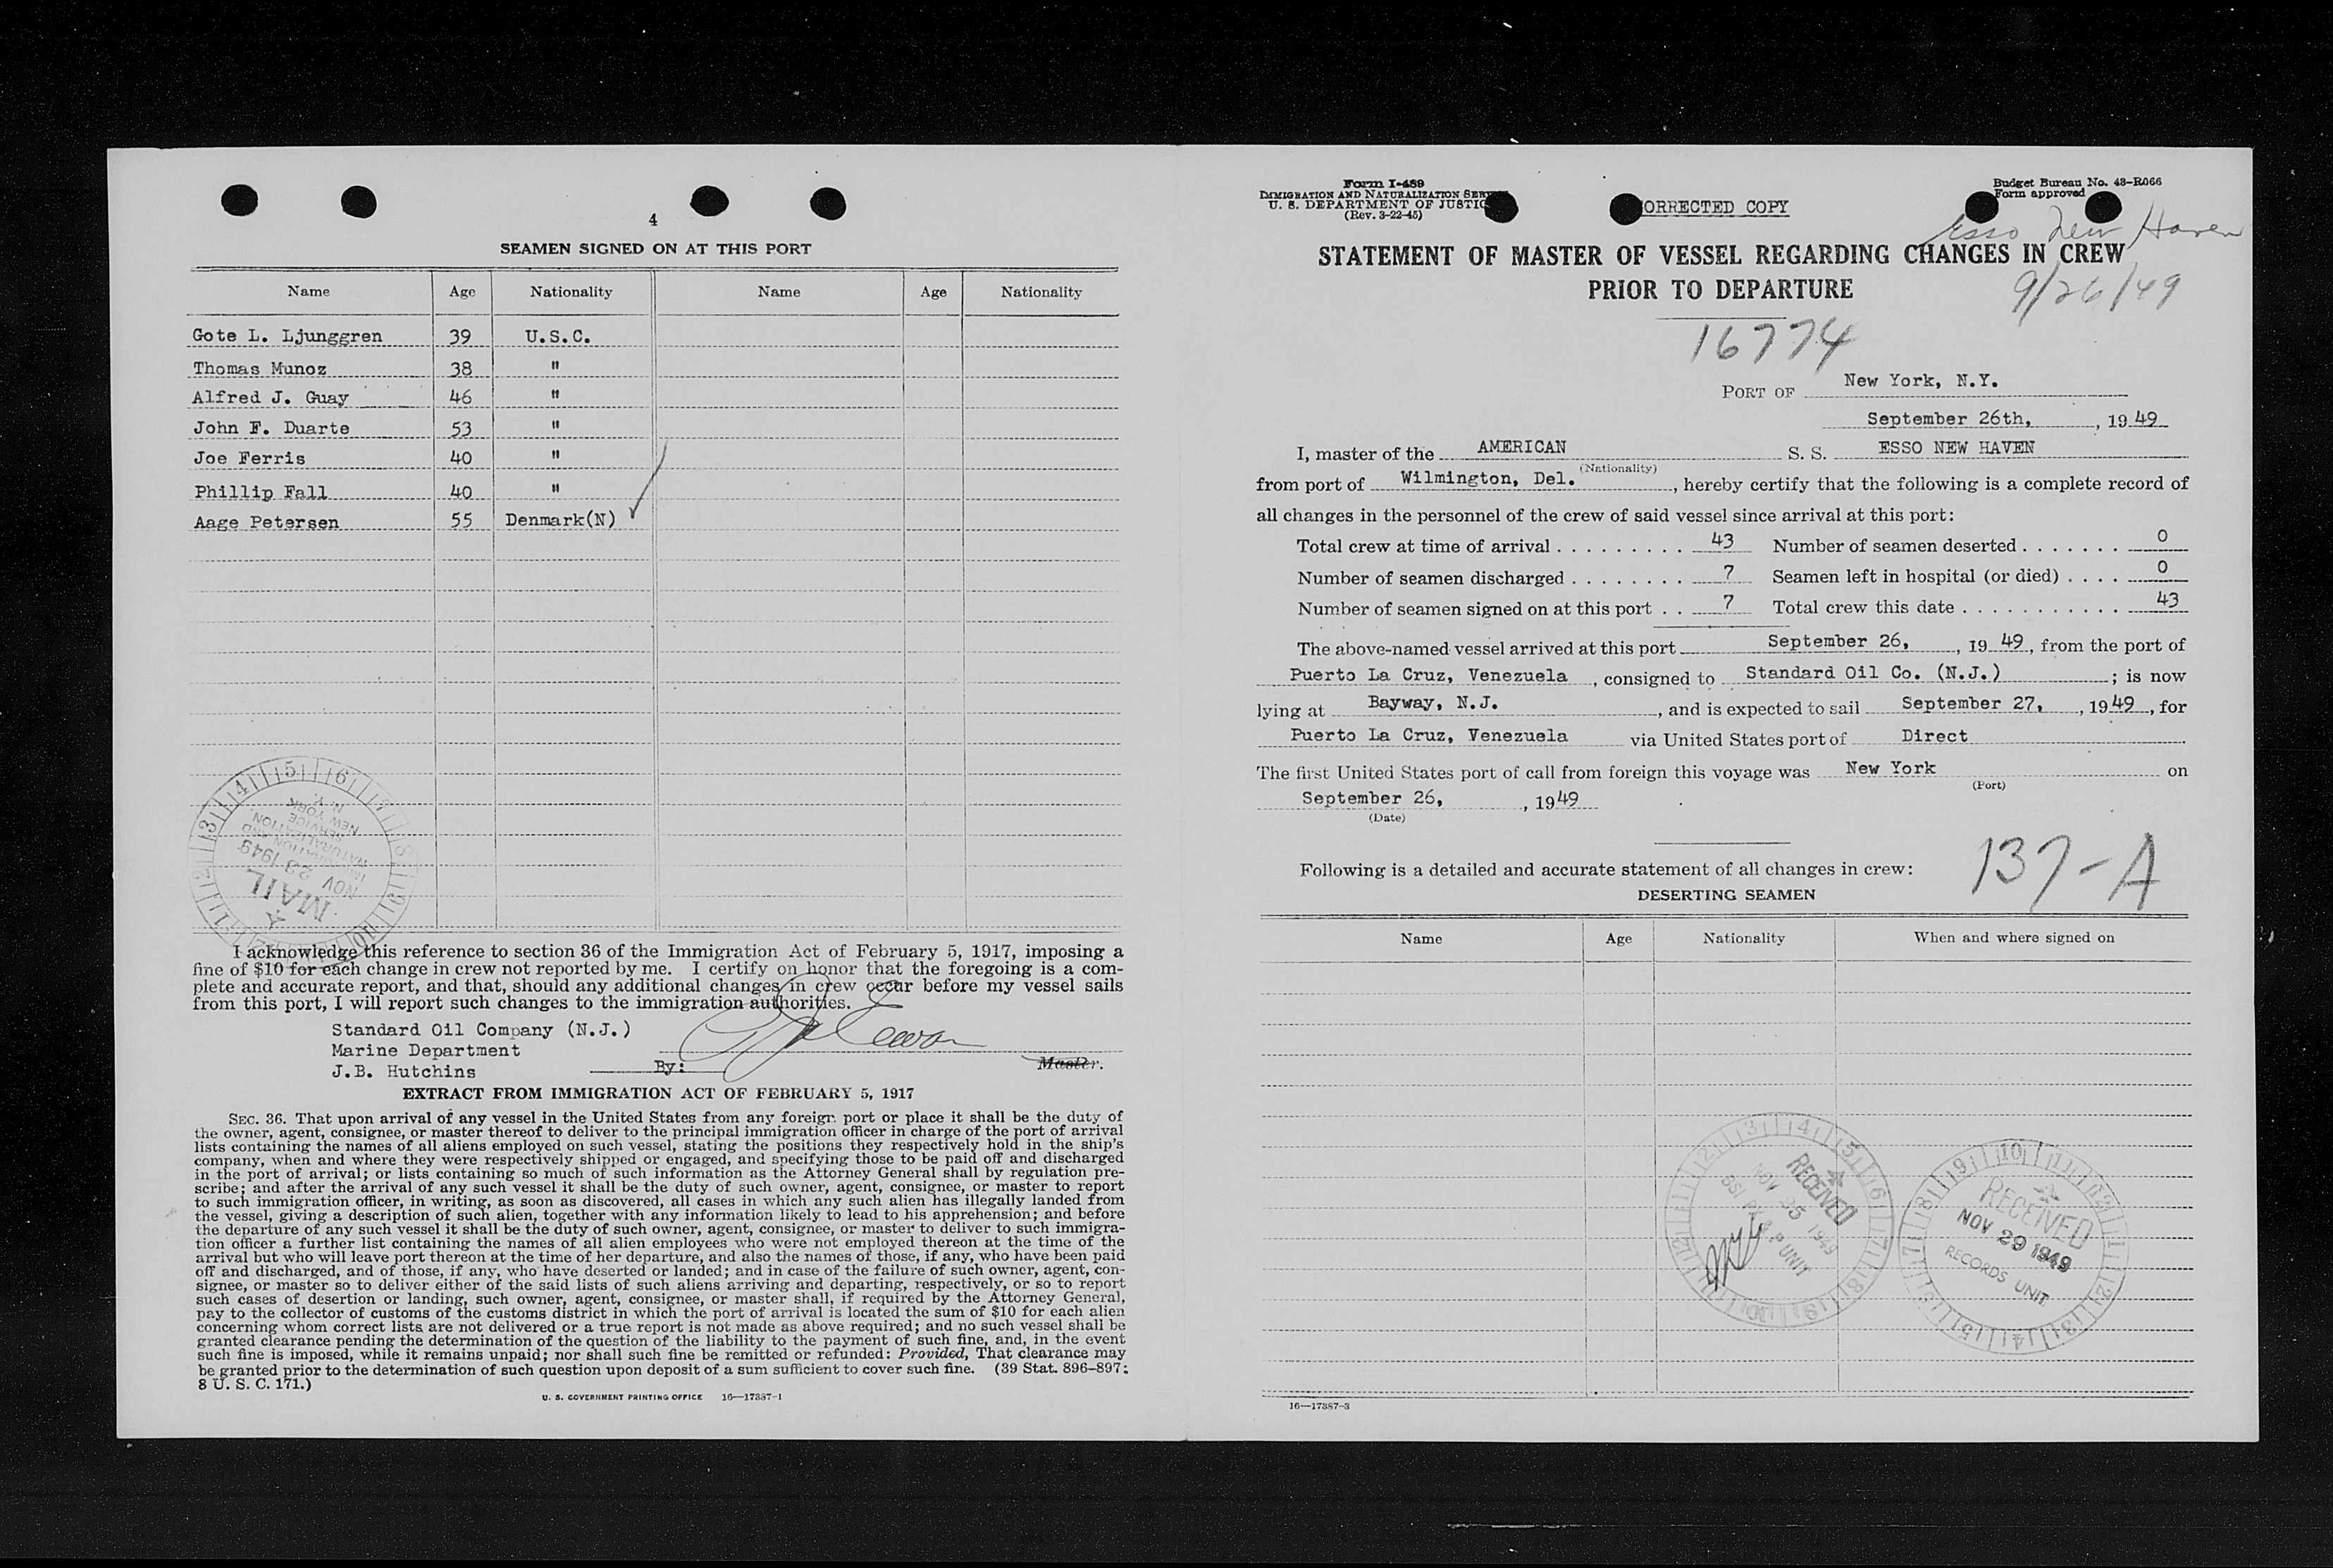 4
SEAMEN SIGNED ON AT THIS PORT
Name Age Nationality Name Age Nationality
Gote L. Ljunggren 39 U.S.C.
Thomas Munoz 38 "
Alfred J. Guay 46 "
John F. Duarte 53 "
Joe Ferris 40 "
Phillip Fall 40 "
Aage Petersen 55 Denmark(N) ✓
NEW YORK
N. Y.
NOV 23 1949
MAIL
I acknowledge this reference to section 36 of the Immigration Act of February 5, 1917, imposing a
fine of $10 for each change in crew not reported by me. I certify on honor that the foregoing is a com-
plete and accurate report, and that, should any additional changes in crew occur before my vessel sails
from this port, I will report such changes to the immigration authorities.
Standard Oil Company (N.J.)
Marine Department
J.B. Hutchins By: Master.
EXTRACT FROM IMMIGRATION ACT OF FEBRUARY 5, 1917
SEC. 36. That upon arrival of any vessel in the United States from any foreign port or place it shall be the duty of
the owner, agent, consignee, or master thereof to deliver to the principal immigration officer in charge of the port of arrival
lists containing the names of all aliens employed on such vessel, stating the positions they respectively hold in the ship's
company, when and where they were respectively shipped or engaged, and specifying those to be paid off and discharged
in the port of arrival; or lists containing so much of such information as the Attorney General shall by regulation pre-
scribe; and after the arrival of any such vessel it shall be the duty of such owner, agent, consignee, or master to report
to such immigration officer, in writing, as soon as discovered, all cases in which any such alien has illegally landed from
the vessel, giving a description of such alien, together with any information likely to lead to his apprehension; and before
the departure of any such vessel it shall be the duty of such owner, agent, consignee, or master to deliver to such immigra-
tion officer a further list containing the names of all alien employees who were not employed thereon at the time of the
arrival but who will leave port thereon at the time of her departure, and also the names of those, if any, who have been paid
off and discharged, and of those, if any, who have deserted or landed; and in case of the failure of such owner, agent, con-
signee, or master so to deliver either of the said lists of such aliens arriving and departing, respectively, or so to report
such cases of desertion or landing, such owner, agent, consignee, or master shall, if required by the Attorney General,
pay to the collector of customs of the customs district in which the port of arrival is located the sum of $10 for each alien
concerning whom correct lists are not delivered or a true report is not made as above required; and no such vessel shall be
granted clearance pending the determination of the question of the liability to the payment of such fine, and, in the event
such fine is imposed, while it remains unpaid; nor shall such fine be remitted or refunded: Provided, That clearance may
be granted prior to the determination of such question upon deposit of a sum sufficient to cover such fine. (39 Stat. 896–897;
8 U. S. C. 171.)
U. S. GOVERNMENT PRINTING OFFICE 16—17387-1
Form I-489
IMMIGRATION AND NATURALIZATION SERV
U. S. DEPARTMENT OF JUSTIC
(Rev. 3-22-45)
ORRECTED COPY
Budget Bureau No. 43-R066
Form approved
Esso New Haven
STATEMENT OF MASTER OF VESSEL REGARDING CHANGES IN CREW
PRIOR TO DEPARTURE
9/26/49
16774
PORT OF New York, N.Y.
September 26th, , 19 49
I, master of the AMERICAN S. S. ESSO NEW HAVEN
(Nationality)
from port of Wilmington, Del. , hereby certify that the following is a complete record of
all changes in the personnel of the crew of said vessel since arrival at this port:
Total crew at time of arrival . . . . . . . . . 43 Number of seamen deserted . . . . . . . 0
Number of seamen discharged . . . . . . . . 7 Seamen left in hospital (or died) . . . . 0
Number of seamen signed on at this port . . 7 Total crew this date . . . . . . . . . . . 43
The above-named vessel arrived at this port September 26, , 19 49, from the port of
Puerto La Cruz, Venezuela , consigned to Standard Oil Co. (N.J.) ; is now
lying at Bayway, N.J. , and is expected to sail September 27, , 1949, for
Puerto La Cruz, Venezuela via United States port of Direct
The first United States port of call from foreign this voyage was New York on
(Port)
September 26, , 1949
(Date)
Following is a detailed and accurate statement of all changes in crew:
137-A
DESERTING SEAMEN
Name Age Nationality When and where signed on
RECEIVED
1949
UNIT
RECEIVED
NOV 29 1949
RECORDS UNIT
16—17387-3